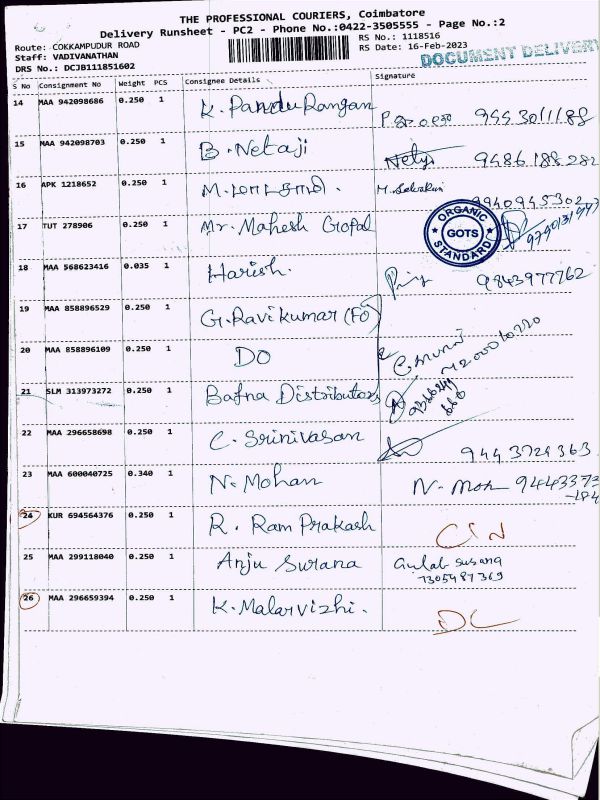 THE PROFESSIONAL COURIERS, Coimbatore
Delivery Runsheet - PC2 - Phone No.:0422-3505555 - Page No.:2
Route: COKKAMPUDUR ROAD
RS No.: 1118516
Staff: VADIVANATHAN
RS Date: 16-Feb-2023
DRS No.: DCJB111851602
DOCUMENT DELIVERY
S No Consignment No Weight PCS Consignee Details Signature
14 MAA 942098686 0.250 1 K. Pandu Rangan
15 MAA 942098703 0.250 1 B. Netaji 9486188282
16 APK 1218652 0.250 1 M. 9940945302
17 TUT 278906 0.250 1 Mr. Mahesh Gopal
ORGANIC
GOTS
STANDARD
18 MAA 568623416 0.035 1 Harish. 9843977762
19 MAA 858896529 0.250 1 G. Ravikumar (FO)
20 MAA 858896109 0.250 1 DO
21 SLM 313973272 0.250 1 Bafna Distributors
22 MAA 296658698 0.250 1 C. Srinivasan
23 MAA 600040725 0.340 1 N. Mohan N. Moh 9443373
-184
24 KUR 694564376 0.250 1 R. Ram Prakash
25 MAA 299118040 0.250 1 Anju Surana
7305487369
26 MAA 296659394 0.250 1 K. Malarvizhi. DL